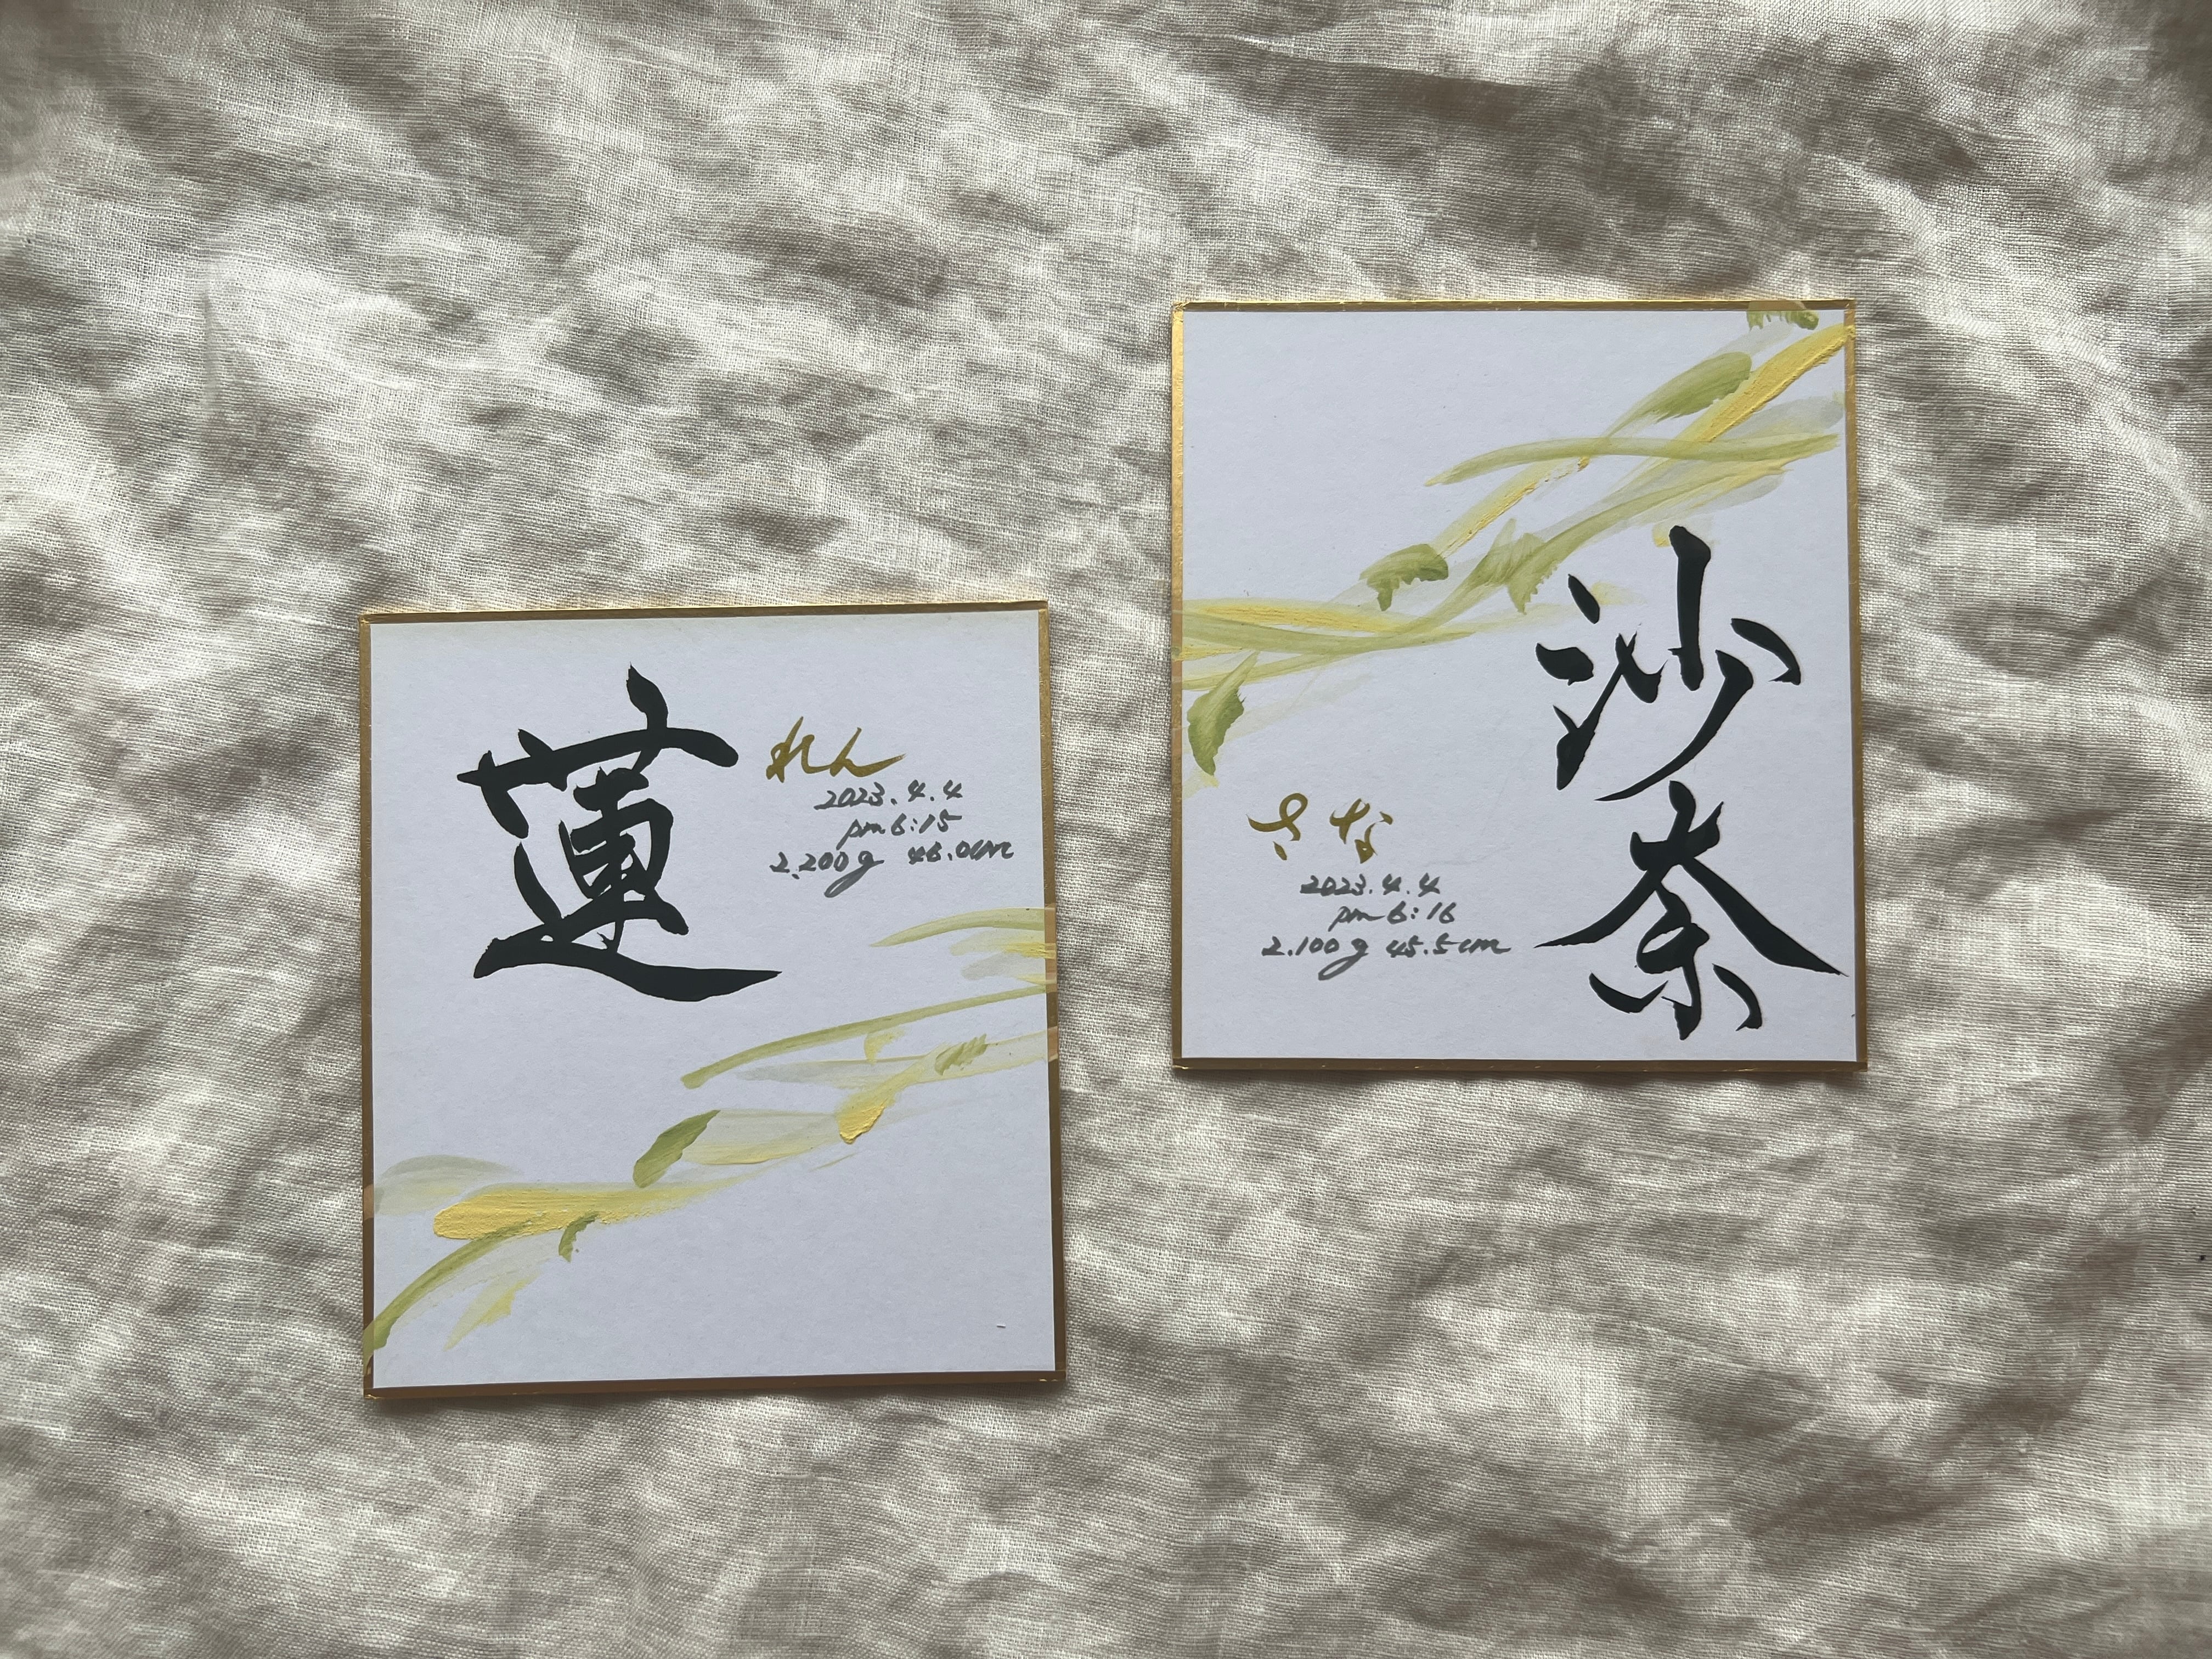 蓮
れん
2023.4.4
pm 6:15
2.200g 46.0cm
沙奈
さな
2023.4.4
pm 6:16
2.100g 45.5cm